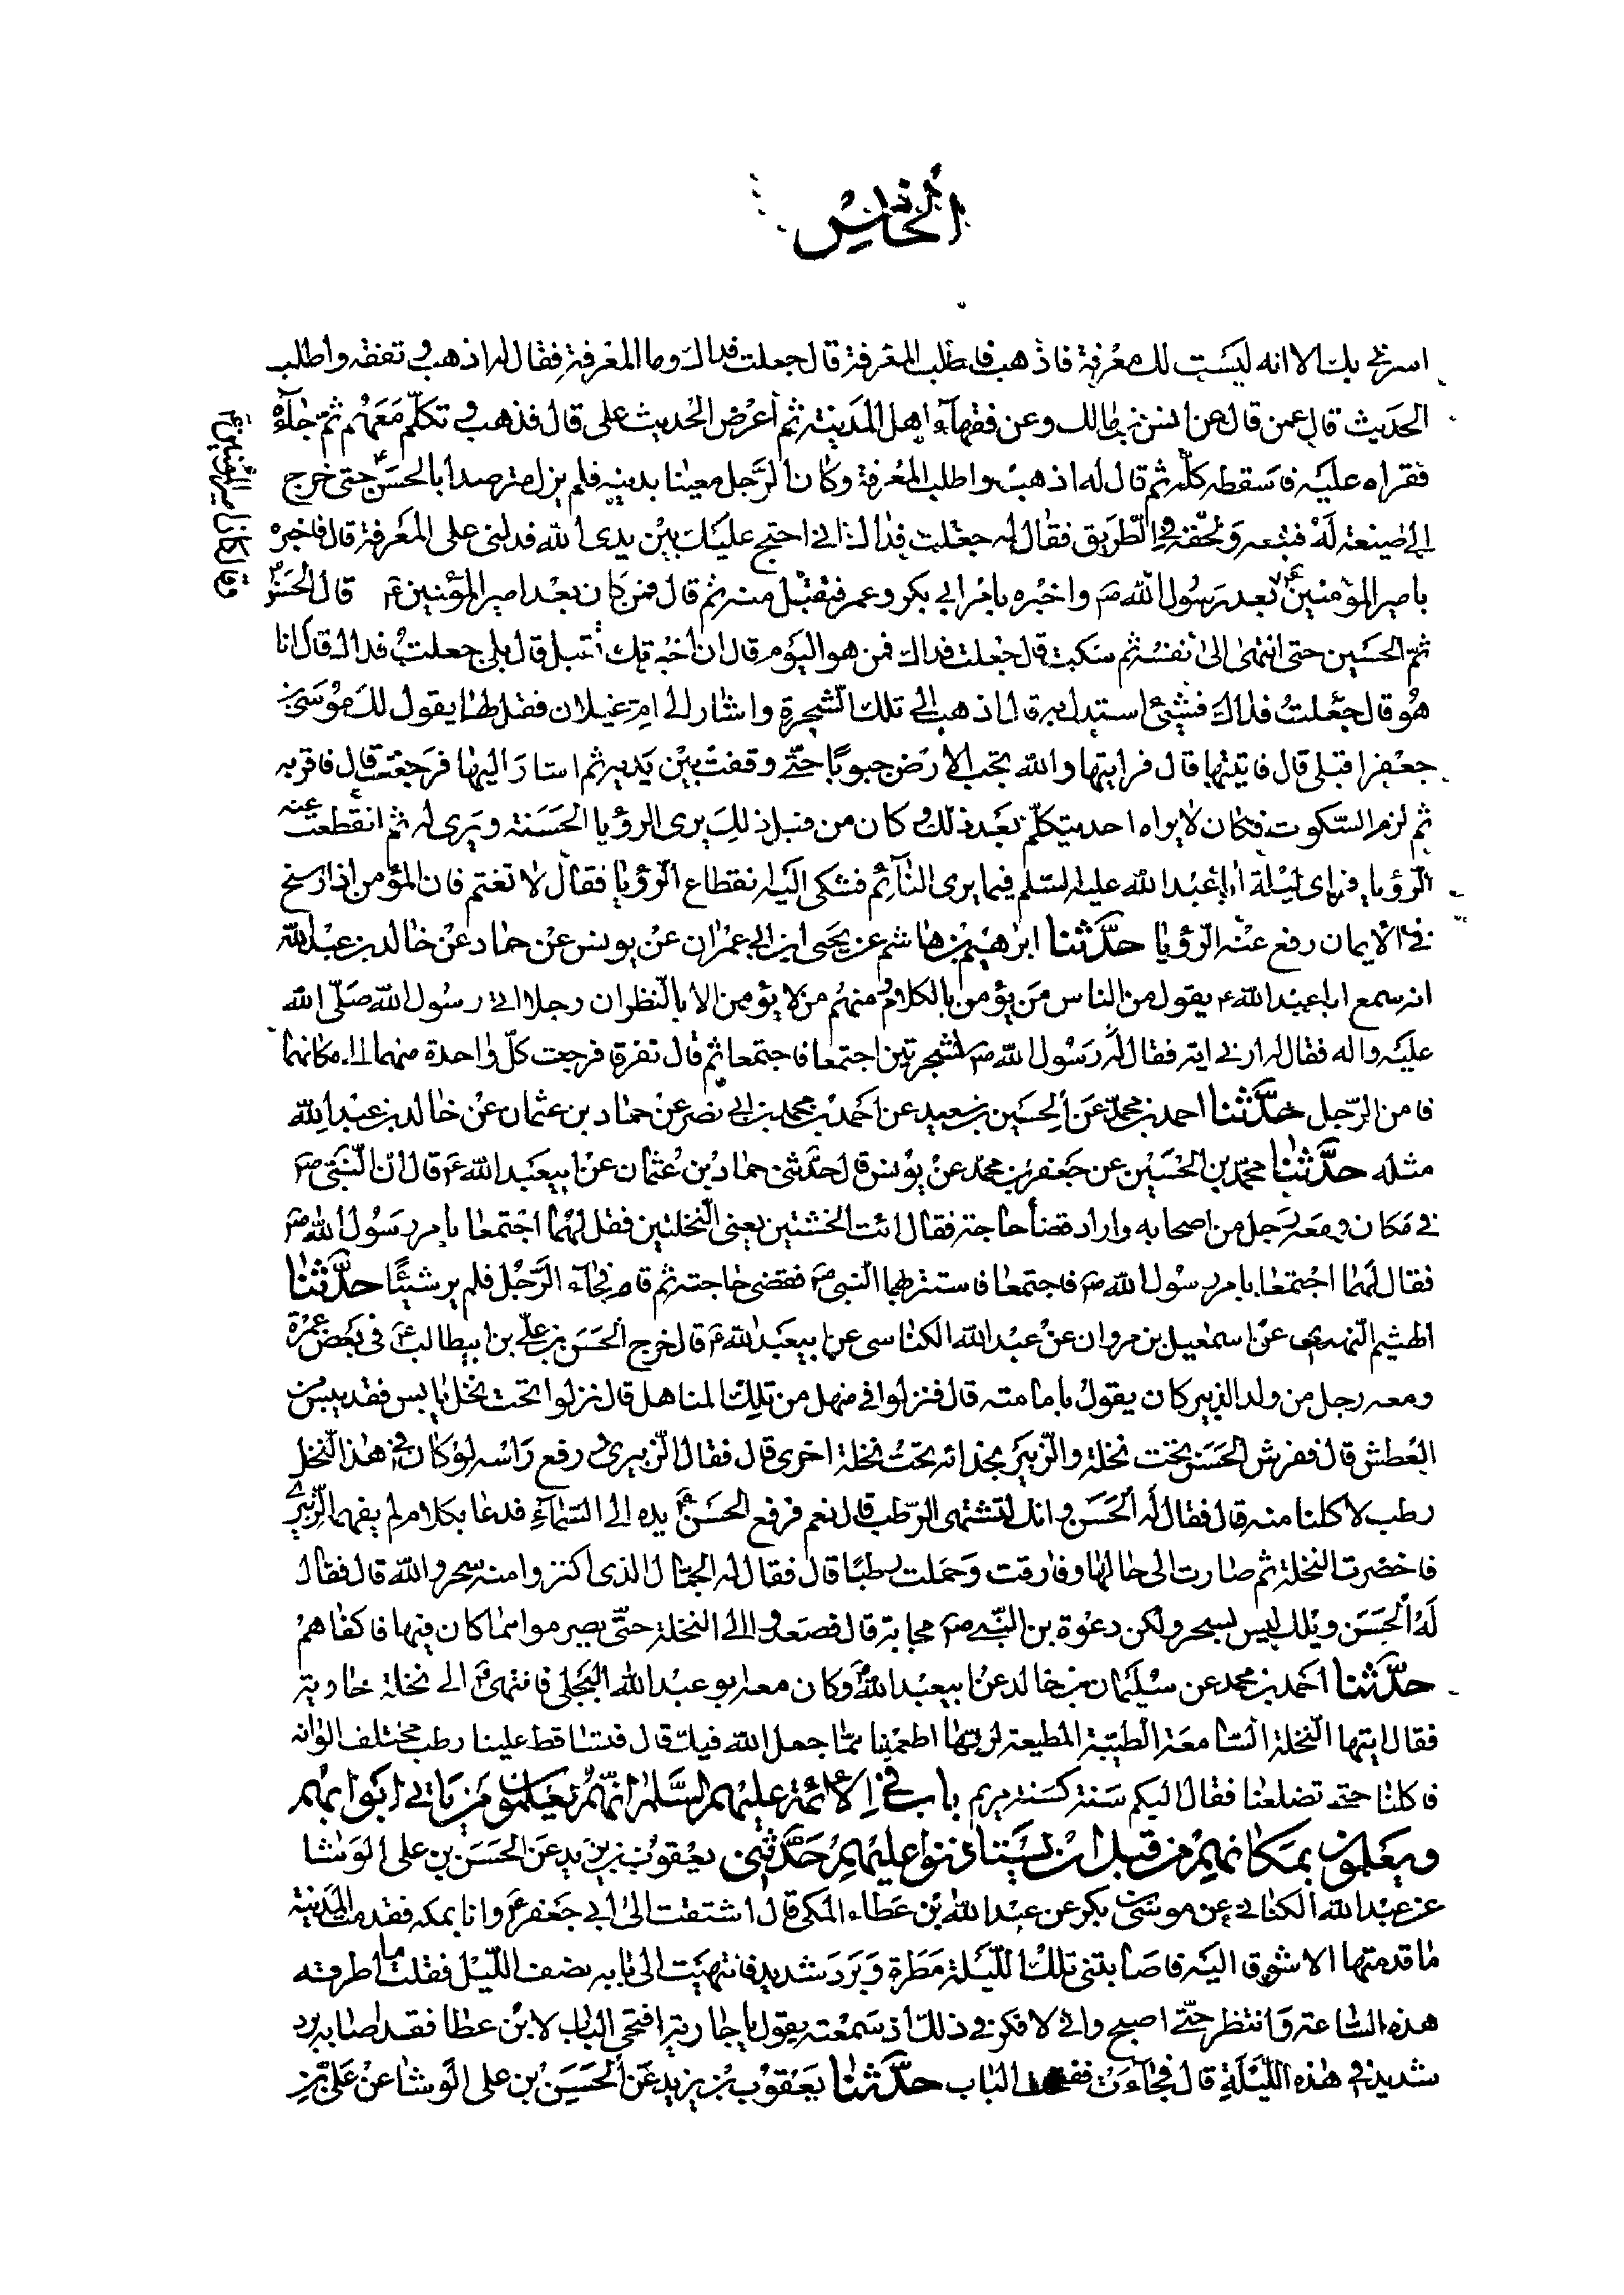 الخامس
اسرنى بك الا انه ليست لك معرفة فاذهب فاطلب المعرفة قال جعلت فداك وما المعرفة فقال له اذهب و تفقه واطلب
الحديث قال عمن قال عن انس بن مالك وعن فقهآء اهل المدينة ثم اعرض الحديث على قال فذهب و تكلم معهم ثم جآءه
فقراه عليه فاسقطه كله ثم قال له اذهب واطلب المعرفة وكان الرجل معينا بدينه فلم يزل مترصدا بالحسن ع حتى خرج
الى ضيعة له فتبعه ولحقه فى الطريق فقال له جعلت فداك انى احتج عليك بين يدى الله فدلنى على المعرفة قال فاخبره
بامير المؤمنين ع بعد رسول الله ص واخبره بامر ابى بكر وعمر فقبل منه ثم قال فمن كان بعد امير المؤمنين ع قال الحسن
وقال كان امير المؤمنين ع
ثم الحسين حتى انتهى الى نفسه ثم سكت قال جعلت فداك فمن هو اليوم قال ان اخبرتك تقبل قال بلى جعلت فداك قال انا
هو قال جعلت فداك فشئ استدل به قال اذهب الى تلك الشجرة واشار الى ام غيلان فقل لها يقول لك موسى بن
جعفر اقبلى قال فاتيتها قال فرايتها والله تجب الارض جبوبا حتى وقفت بين يديه ثم اشار اليها فرجعت قال فاقر به
ثم لزم السكوت فكان لا يراه احد يتكلم بعد ذلك و كان من قبل ذلك يرى الرؤيا الحسنة ويرى له ثم انقطعت عنه
الرؤيا فراى ليلة ابا عبد الله عليه السلم فيما يرى النائم فشكى اليه انقطاع الرؤيا فقال لا تغتم فان المؤمن اذا رسخ
فى الايمان رفع عنه الرؤيا حدثنا ابرهيم بن هاشم عن يحيى ابن ابى عمران عن يونس عن حماد عن خالد بن عبد الله
انه سمع ابا عبد الله ع يقول من الناس من يؤمن بالكلام و منهم من لا يؤمن الا بالنظر ان رجلا اتى رسول الله صلى الله
عليه واله فقال له ارنى اية فقال له رسول الله ص لشجرتين اجتمعا فاجتمعا ثم قال تفرقا فرجعت كل واحدة منهما الى مكانهما
فامن الرجل حدثنا احمد بن محمد عن الحسين بن سعيد عن احمد بن محمد بن ابى نصر عن حماد بن عثمان عن خالد بن عبد الله
مثله حدثنا محمد بن الحسين عن جعفر بن محمد عن يونس قال حدثنى حماد بن عثمان عن ابيعبد الله ع قال ان النبى ص
فى مكان و معه رجل من اصحابه واراد قضأ حاجة فقال ائت الخشبتين يعنى النخلتين فقل لهما اجتمعا بامر رسول الله ص
فقال لهما اجتمعا بامر رسول الله ص فاجتمعا فاستتر بهما النبى ص فقضى حاجته ثم قام فجآء الرجل فلم ير شيئا حدثنا
الهيثم النهدى عن اسمعيل بن مروان عن عبد الله الكناسى عن ابيعبد الله ع قال خرج الحسن بن على بن ابيطالب ع فى بعض عمرة
ومعه رجل من ولد الزبير كان يقول بامامته قال فنزلوا فى منهل من تلك المناهل قال نزلوا تحت نخل يابس فقد يبس من
العطش قال ففرش الحسن تحت نخلة والزبير بحذائه تحت نخلة اخرى قال فقال الزبيرى و رفع راسه لو كان فى هذا النخل
رطب لاكلنا منه قال فقال له الحسن و انك لتشتهى الرطب قال نعم فرفع الحسن ع يده الى السمآء فدعا بكلام لم يفهمه الزبيرى
فاخضرت النخلة ثم صارت الى حالها وفارقت وحملت رطبا قال فقال له الجمال الذى اكتروا منه سحر والله قال فقال
له الحسن ويلك ليس بسحر ولكن دعوة بن النبى ص مجابة قال فصعدوا الى النخلة حتى يصرموا مما كان فيها فاكفاهم
حدثنا احمد بن محمد عن سليمان بن خالد عن ابيعبد الله ع وكان معه ابو عبد الله البجلى فانتهى ع الى نخلة خاوية
فقال ايتها النخلة السامعة الطيبة المطيعة لربها اطعمينا مما جعل الله فيك قال فتساقط علينا رطب مختلف الوانه
فاكلنا حتى تضلعنا فقال اليكم سنة كسنة مريم باب فى الائمة عليهم السلام انهم يعلمون من ياتى ابوابهم
ويعلمون بمكانهم من قبل ان يستاذنوا عليهم حدثنى يعقوب بن يزيد عن الحسن بن على الوشا
عن عبد الله الكنانى عن موسى بن بكر عن عبد الله بن عطاء المكى قال اشتقت الى ابى جعفر ع وانا بمكة فقدمت المدينة
ما قدمتها الا شوقا اليه فاصابتنى تلك الليلة مطرة وبرد شديد فانتهيت الى بابه نصف الليل فقلت ما اطرقه
هذه الساعة وانتظر حتى اصبح وانى لافكر فى ذلك اذ سمعته يقول يا جارية افتحى الباب لابن عطا فقد اصابه برد
شديد فى هذه الليلة قال فجآءت ففتحت الباب حدثنا يعقوب بن يزيد عن الحسين بن على الوشا عن على بن